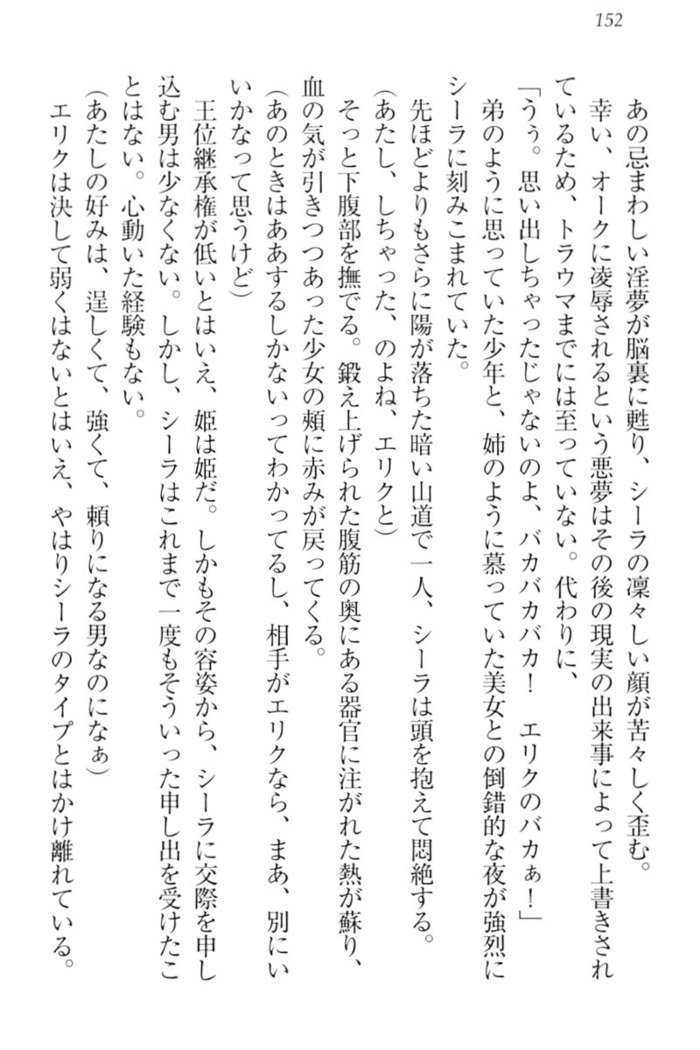 152
あの忌まわしい淫夢が脳裏に甦り、シーラの凜々しい顔が苦々しく歪む。
幸い、オークに凌辱されるという悪夢はその後の現実の出来事によって上書きされ
ているため、トラウマまでには至っていない。代わりに、
「うぅ。思い出しちゃったじゃないのよ、バカバカバカ！　エリクのバカぁ！」
弟のように思っていた少年と、姉のように慕っていた美女との倒錯的な夜が強烈に
シーラに刻みこまれていた。
先ほどよりもさらに陽が落ちた暗い山道で一人、シーラは頭を抱えて悶絶する。
（あたし、しちゃった、のよね、エリクと）
そっと下腹部を撫でる。鍛え上げられた腹筋の奥にある器官に注がれた熱が蘇り、
血の気が引きつつあった少女の頬に赤みが戻ってくる。
（あのときはああするしかないってわかってるし、相手がエリクなら、まあ、別にい
いかなって思うけど）
王位継承権が低いとはいえ、姫は姫だ。しかもその容姿から、シーラに交際を申し
込む男は少なくない。しかし、シーラはこれまで一度もそういった申し出を受けたこ
とはない。心動いた経験もない。
（あたしの好みは、逞しくて、強くて、頼りになる男なのになぁ）
エリクは決して弱くはないとはいえ、やはりシーラのタイプとはかけ離れている。